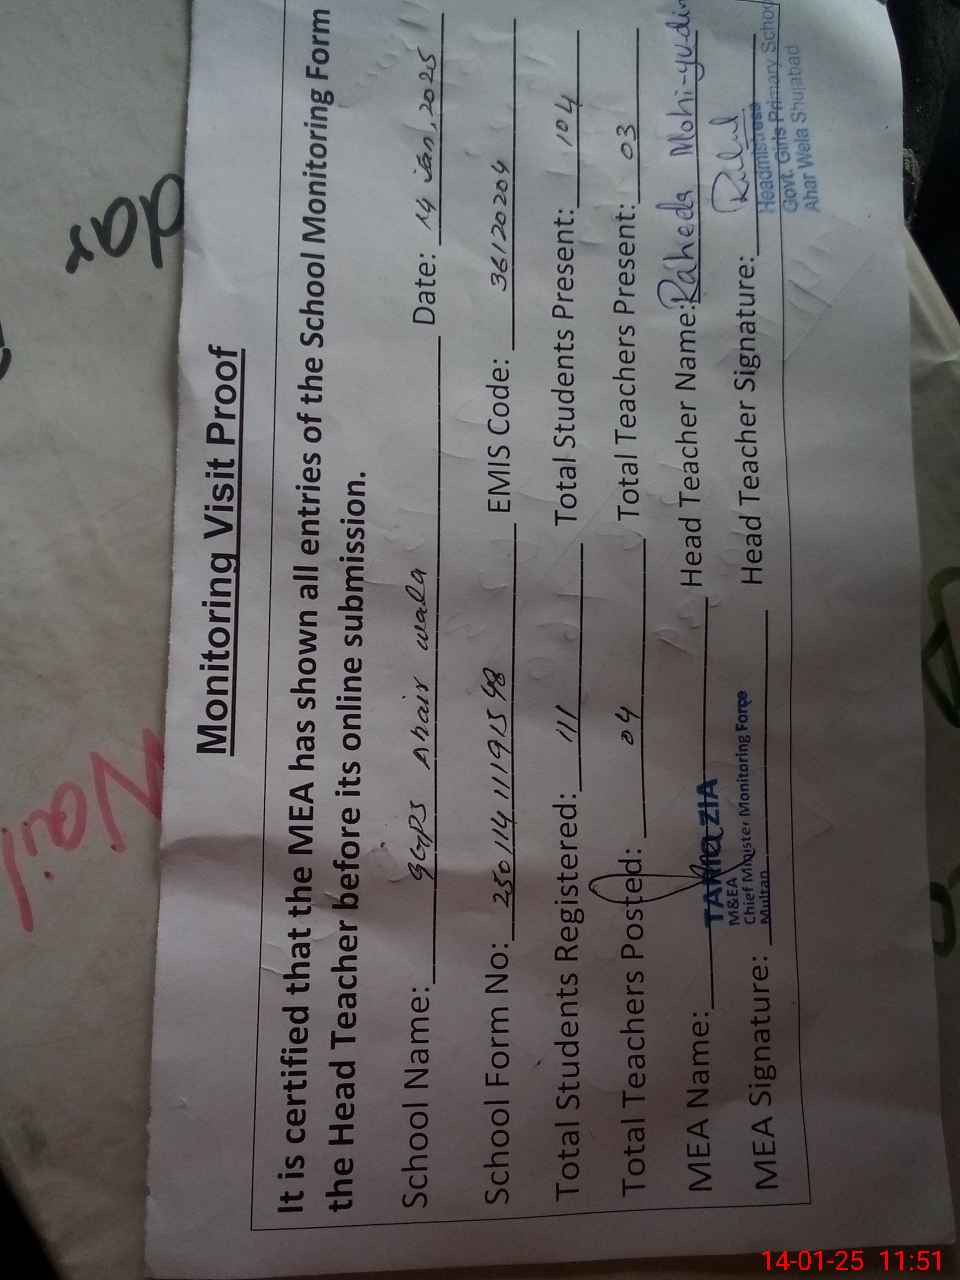 Monitoring Visit Proof
It is certified that the MEA has shown all entries of the School Monitoring Form
the Head Teacher before its online submission.
School Name: GGPS Ahair wala Date: 14 Jan, 2025
School Form No: EMIS Code: 36120204
Total Students Registered: 111 Total Students Present: 104
Total Teachers Posted: 04 Total Teachers Present: 03
MEA Name: Head Teacher Name: Raheda Mohi-yudin
ZIA
M&EA
Chief Minister Monitoring Force
Multan
MEA Signature: Head Teacher Signature:
Headmistress
Govt. Girls Primary School
Ahar Wela Shujabad
dar
Nail
14-01-25 11:51